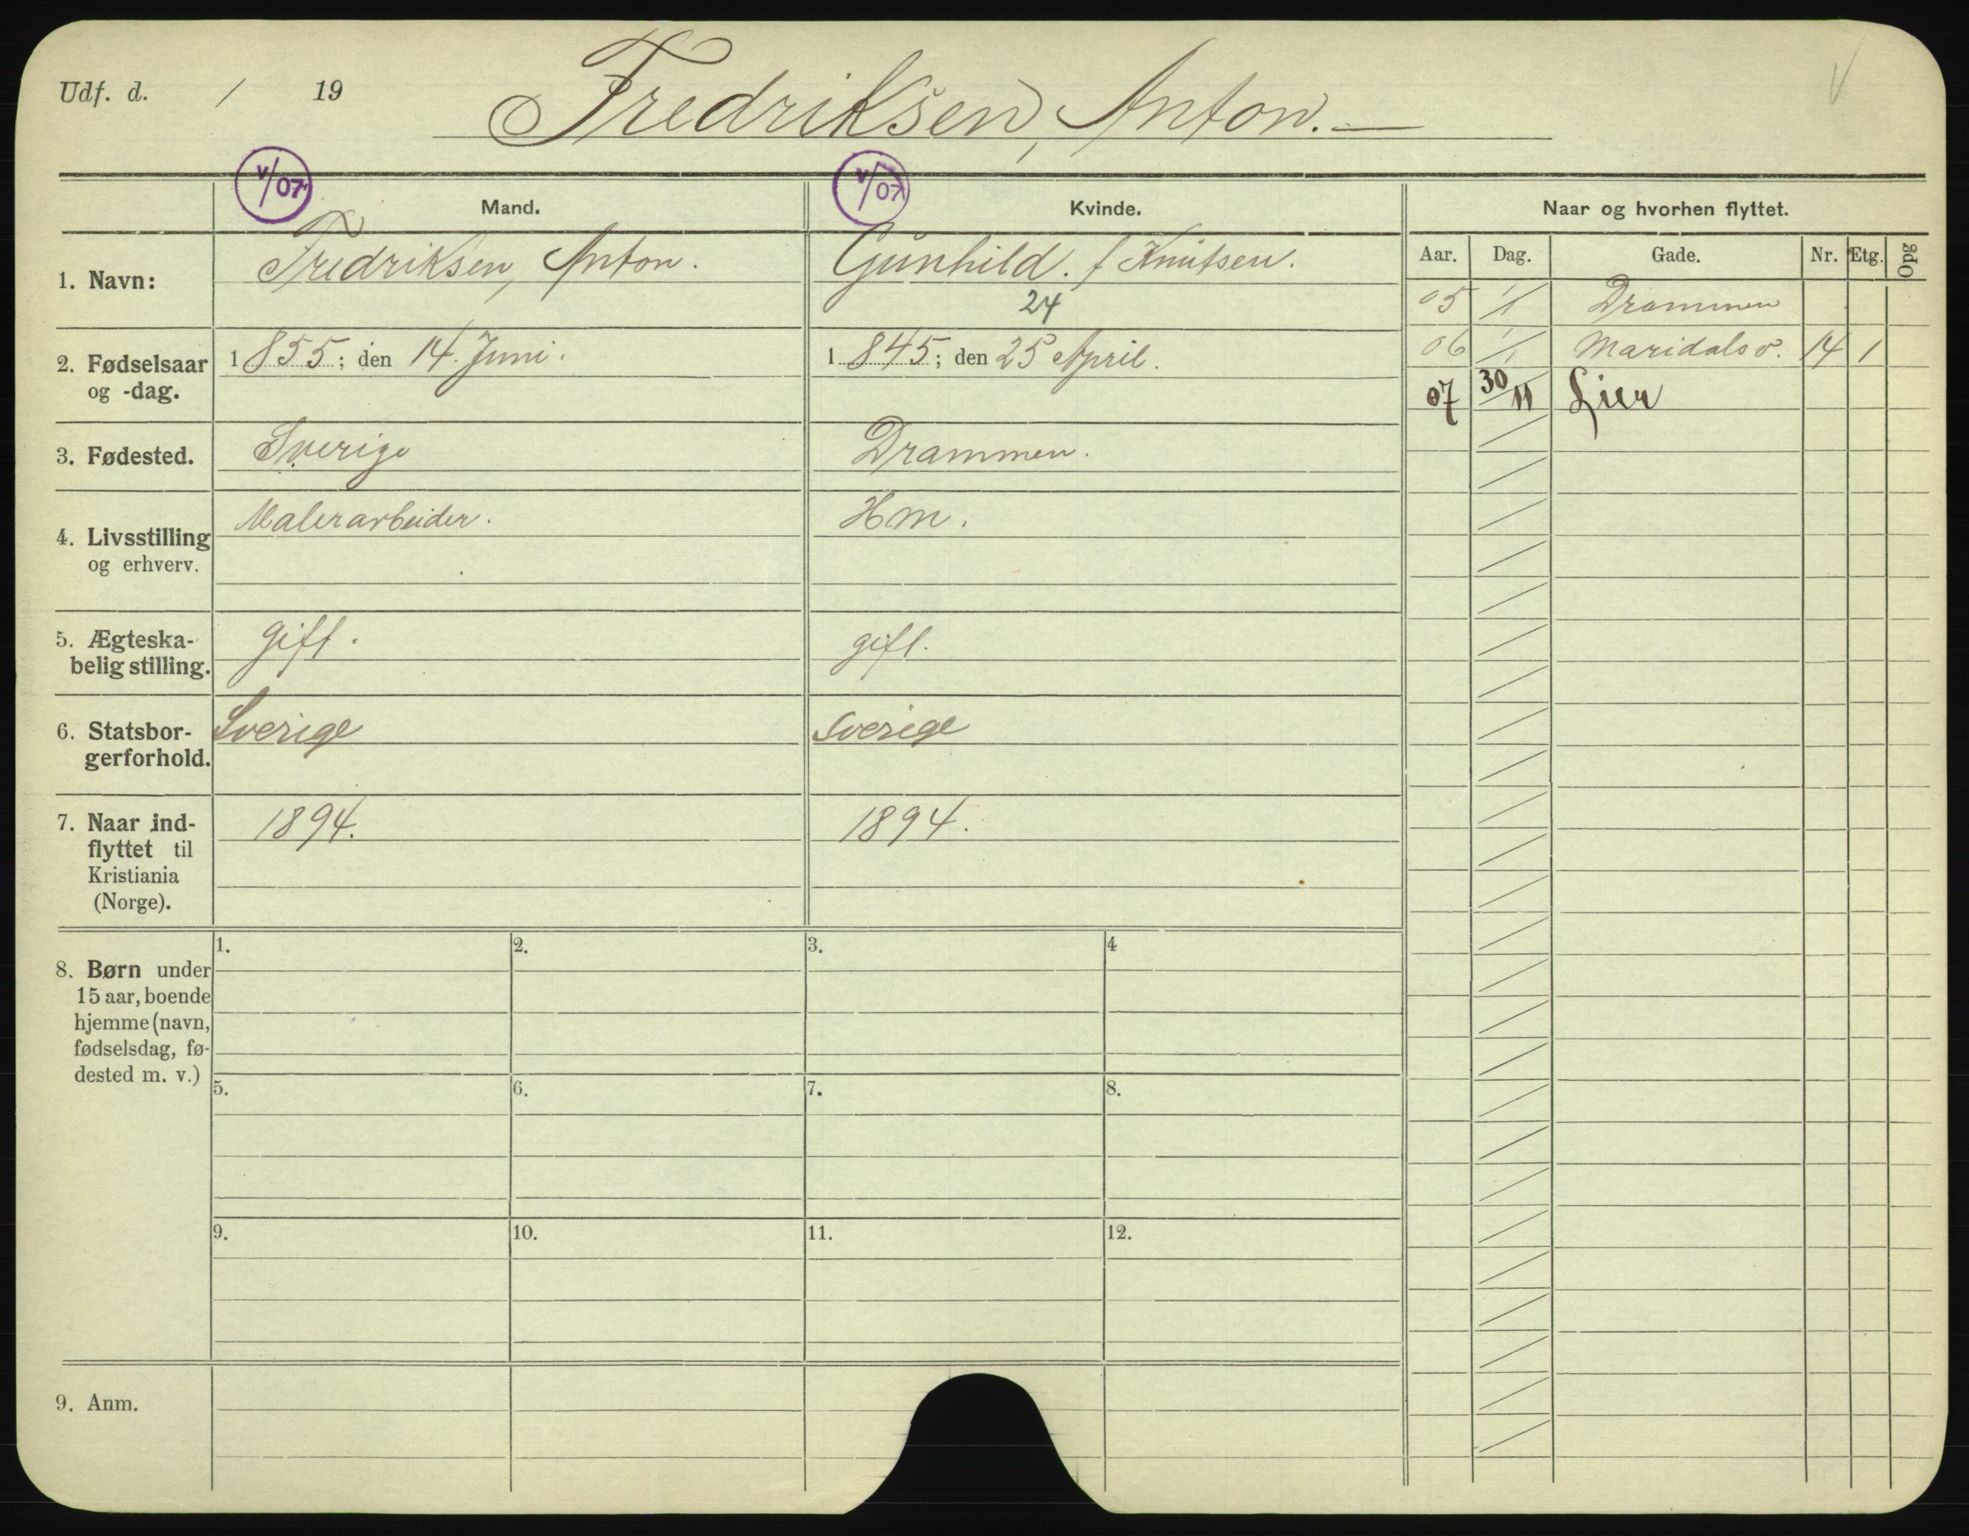 Udf. d. / 19
Fredriksen, Anton. —
V/07 V/07
Mand. Kvinde. Naar og hvorhen flyttet.
Aar. Dag. Gade. Nr. Etg. Opg
1. Navn: Fredriksen, Anton. Gunhild. f Knutsen.
05 1/1 Drammen
24
2. Fødselsaar og -dag. 1855; den 14. Juni. 1845; den 25 April.
06 1/1 Maridalsv. 14 1
07 30/11 Lier
3. Fødested. Sverige Drammen.
4. Livsstilling og erhverv. Malerarbeider. Hm.
5. Ægteska-
belig stilling. gift. gift.
6. Statsbor-
gerforhold. Sverige Sverige
7. Naar ind-
flyttet til
Kristiania
(Norge). 1894. 1894.
8. Børn under
15 aar, boende
hjemme (navn,
fødselsdag, fø-
dested m. v.)
1. 2. 3. 4
5. 6. 7. 8.
9. 10. 11. 12.
9. Anm.